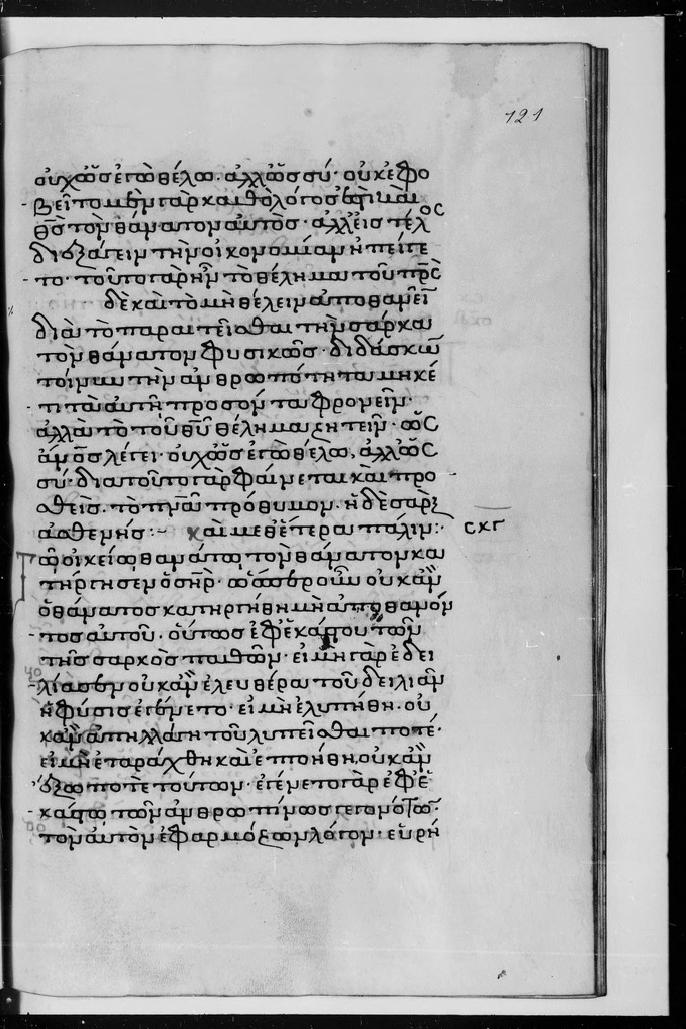 121
οὐχ ὡς ἐγὼ θέλω. ἀλλ' ὡς σύ· οὐκ ἐφο
βεῖτο μὲν γὰρ καθὸ λόγος ἐστὶ καὶ
θς τὸν θάνατον αὐτὸς· ἀλλ' εἰς τέλος
διεξάγειν τὴν οἰκονομίαν ἠπείγε
το· τοῦτο γὰρ ἦν τὸ θέλημα τοῦ πρς
δὲ καὶ τὸ μὴ θέλειν ἀποθανεῖν
διὰ τὸ παραιτεῖσθαι τὴν σάρκα
τὸν θάνατον φυσικῶς· διδάσκων
τοίνυν τὴν ἀνθρωπότητα μηκέ
τι τὰ αὐτῆ προσόντα φρονεῖν·
ἀλλὰ τὸ τοῦ θυ θέλημα ζητεῖν· ὡς
ἀνος λέγει· οὐχ ὡς ἐγὼ θέλω, ἀλλ' ὡς
σύ· διατοῦτο γὰρ φαίνεται καὶ προσ
θεὶς. τὸ πνα πρόθυμον. ἡ δὲ σὰρξ
ἀσθενής:~ καὶ μεθ' ἕτερα πάλιν:
σκγ
Τῶ οἰκείω θανάτω τὸν θάνατον κα
τήργησεν ὁ σηρ. ὡς
οὐκ ἂν
ὁ θάνατος κατηργήθη μὴ ἀποθανόν
τος αὐτοῦ. οὕτως ἐφ' ἑκάστου τῶν
τῆς σαρκὸς παθῶν· εἰ μὴ γὰρ ἐδει
λίασεν οὐκ ἂν ἐλευθέρα τοῦ δειλιᾶν
ἡ φύσις ἐγένετο· εἰ μὴ ἐλυπήθη. οὐ
κ ἂν ἀπηλλάγη τοῦ λυπεῖσθαι ποτέ·
εἰ μὴ ἐταράχθη καὶ ἐπτοήθη. οὐκ ἂν
ἔξω ποτὲ τούτων· ἐγένετο γὰρ ἐφ' ἑ
κάστω τῶν ἀνθρωπίνως γεγονότων·
τὸν αὐτὸν ἐφαρμόζων λόγον· εὑρή